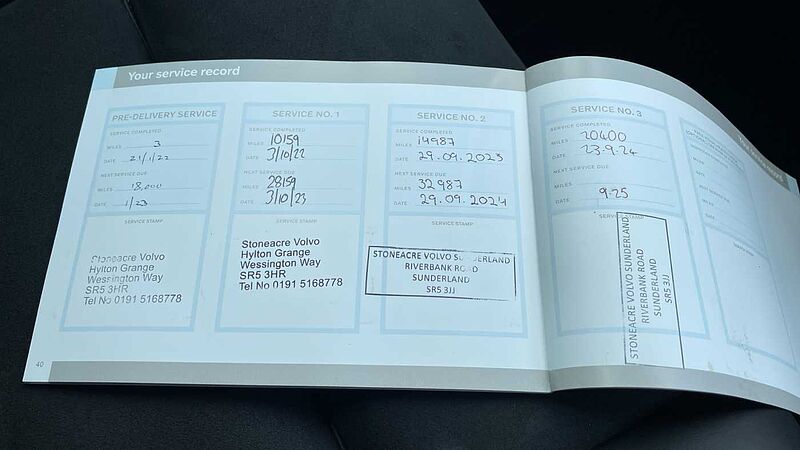 Your service record
PRE-DELIVERY SERVICE
SERVICE COMPLETED
MILES 3
DATE 21/1/22
NEXT SERVICE DUE
MILES 18,000
DATE 1/23
SERVICE STAMP
Stoneacre Volvo
Hylton Grange
Wessington Way
SR5 3HR
Tel No 0191 5168778
SERVICE NO. 1
SERVICE COMPLETED
MILES 10159
DATE 3/10/22
NEXT SERVICE DUE
MILES 28159
DATE 3/10/23
SERVICE STAMP
Stoneacre Volvo
Hylton Grange
Wessington Way
SR5 3HR
Tel No 0191 5168778
SERVICE NO. 2
SERVICE COMPLETED
MILES 14987
DATE 29.09.2023
NEXT SERVICE DUE
MILES 32987
DATE 29.09.2024
SERVICE STAMP
STONEACRE VOLVO SUNDERLAND
RIVERBANK ROAD
SUNDERLAND
SR5 3JJ
SERVICE NO. 3
SERVICE COMPLETED
MILES 20400
DATE 23.9.24
NEXT SERVICE DUE
MILES
DATE 9.25
SERVICE STAMP
STONEACRE VOLVO SUNDERLAND
RIVERBANK ROAD
SUNDERLAND
SR5 3JJ
40